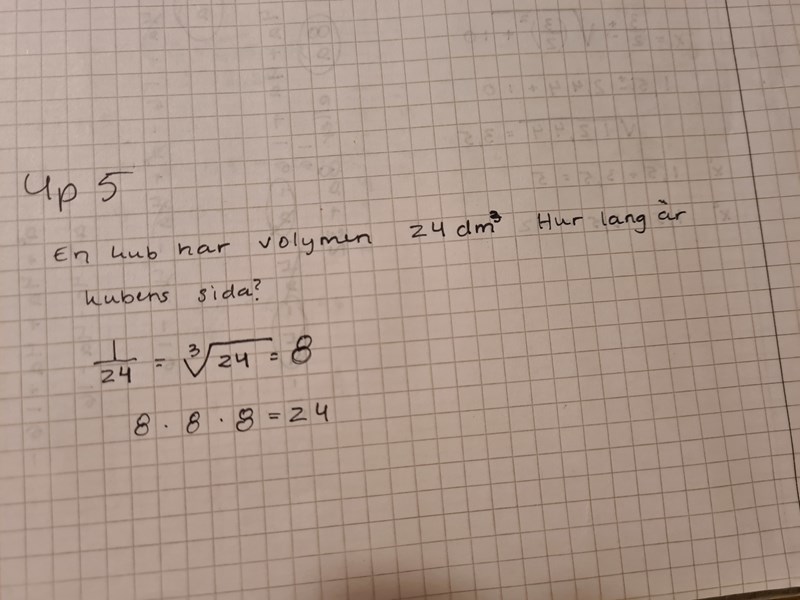 Up 5
En kub har volymen 24 dm³ Hur lang är
kubens sida?
1/24 = ∛24 = 8
8 · 8 · 8 = 24